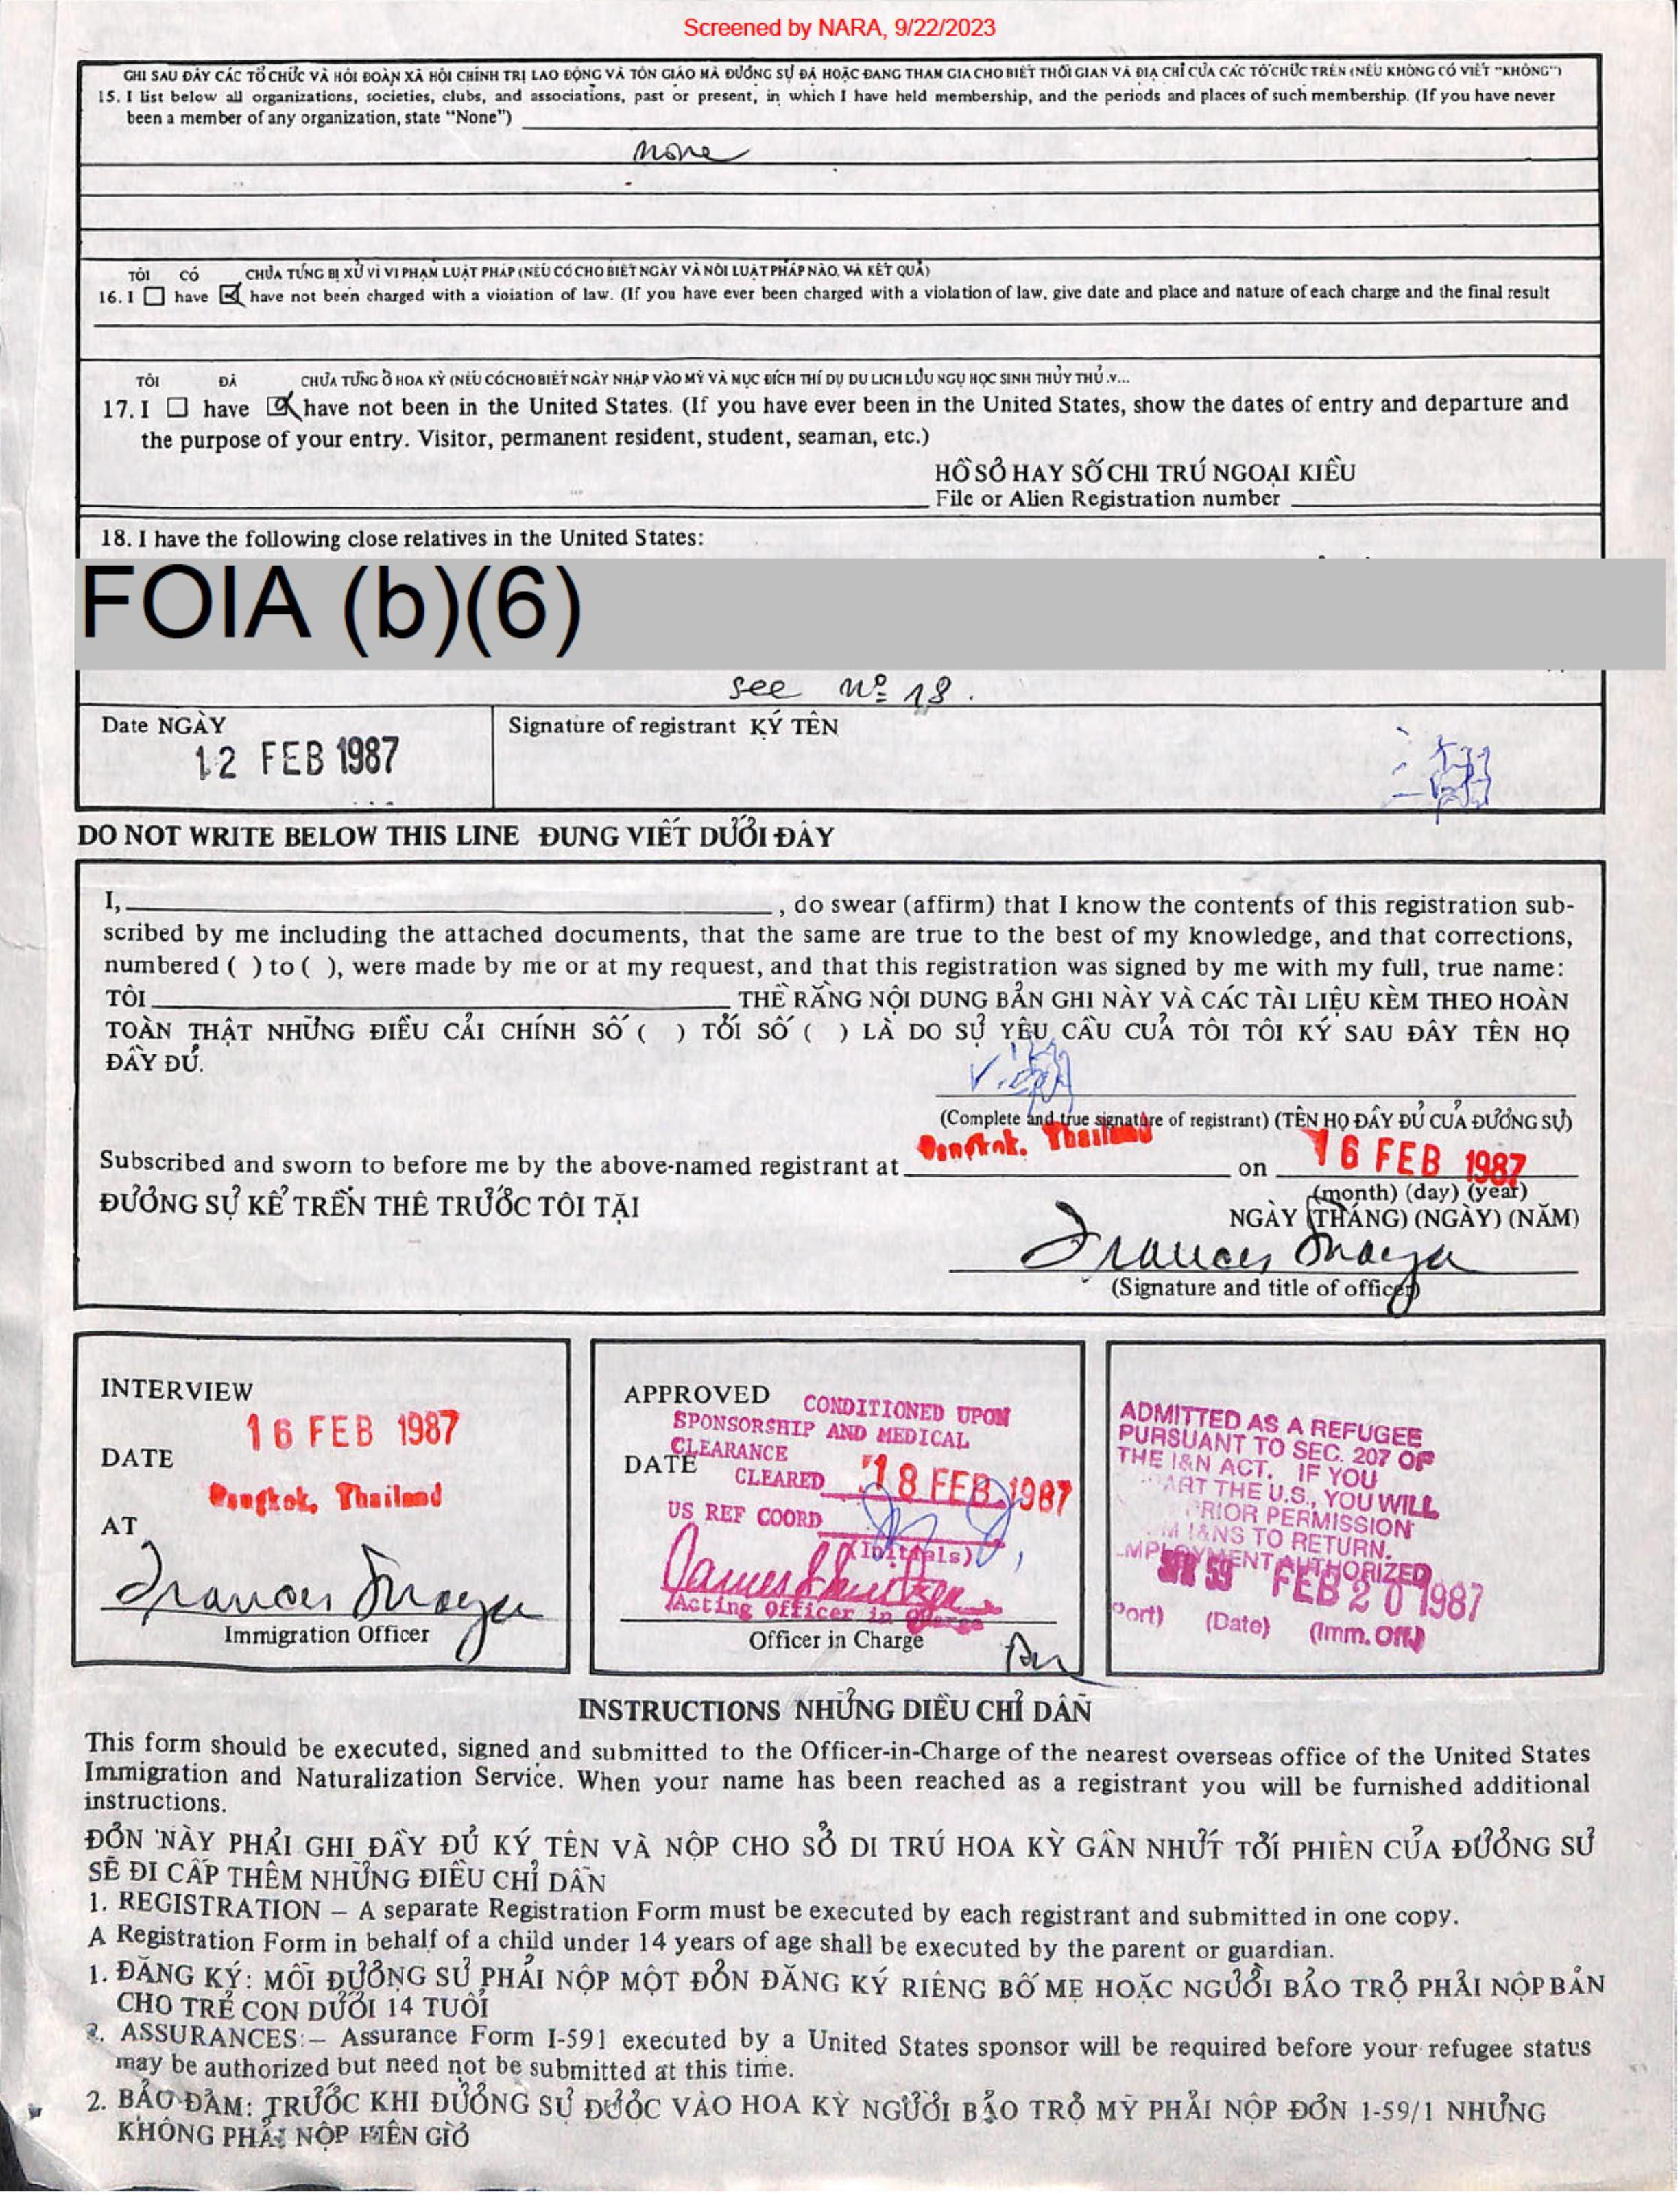 Screened by NARA, 9/22/2023
GHI SAU ĐÂY CÁC TỔ CHỨC VÀ HỘI ĐOÀN XÃ HỘI CHÍNH TRỊ LAO ĐỘNG VÀ TÔN GIÁO MÀ ĐƯƠNG SỰ ĐÃ HOẶC ĐANG THAM GIA CHO BIẾT THỜI GIAN VÀ ĐỊA CHỈ CỦA CÁC TỔ CHỨC TRÊN (NẾU KHÔNG CÓ VIẾT "KHÔNG")
15. I list below all organizations, societies, clubs, and associations, past or present, in which I have held membership, and the periods and places of such membership. (If you have never
been a member of any organization, state "None")
none
TÔI CÓ CHƯA TỪNG BỊ XỬ VÌ VI PHẠM LUẬT PHÁP (NẾU CÓ CHO BIẾT NGÀY VÀ NƠI LUẬT PHÁP NÀO, VÀ KẾT QUẢ)
16. I have have not been charged with a violation of law. (If you have ever been charged with a violation of law, give date and place and nature of each charge and the final result
TÔI ĐÃ CHƯA TỪNG Ở HOA KỲ (NẾU CÓ CHO BIẾT NGÀY NHẬP VÀO MỸ VÀ MỤC ĐÍCH THÍ DỤ DU LỊCH LƯU NGỤ HỌC SINH THỦY THỦ .V...
17. I have have not been in the United States. (If you have ever been in the United States, show the dates of entry and departure and
the purpose of your entry. Visitor, permanent resident, student, seaman, etc.)
HỒ SƠ HAY SỐ CHI TRÚ NGOẠI KIỀU
File or Alien Registration number
18. I have the following close relatives in the United States:
FOIA (b)(6)
see Nº 18.
Date NGÀY Signature of registrant KÝ TÊN
12 FEB 1987
DO NOT WRITE BELOW THIS LINE ĐUNG VIẾT DƯỚI ĐÂY
I, , do swear (affirm) that I know the contents of this registration sub-
scribed by me including the attached documents, that the same are true to the best of my knowledge, and that corrections,
numbered ( ) to ( ), were made by me or at my request, and that this registration was signed by me with my full, true name:
TÔI THỀ RẰNG NỘI DUNG BẢN GHI NÀY VÀ CÁC TÀI LIỆU KÈM THEO HOÀN
TOÀN THẬT NHỮNG ĐIỀU CẢI CHÍNH SỐ ( ) TỚI SỐ ( ) LÀ DO SỰ YÊU CẦU CUẢ TÔI TÔI KÝ SAU ĐÂY TÊN HỌ
ĐẦY ĐỦ.
(Complete and true signature of registrant) (TÊN HỌ ĐẦY ĐỦ CUẢ ĐƯƠNG SỰ)
Subscribed and sworn to before me by the above-named registrant at Bangkok, Thailand on 16 FEB 1987
(month) (day) (year)
ĐƯƠNG SỰ KỂ TRÊN THỀ TRƯỚC TÔI TẠI
NGÀY (THÁNG) (NGÀY) (NĂM)
(Signature and title of officer)
INTERVIEW
16 FEB 1987
DATE
Bangkok, Thailand
AT
Immigration Officer
APPROVED CONDITIONED UPON
SPONSORSHIP AND MEDICAL
CLEARANCE
DATE CLEARED 18 FEB 1987
US REF COORD
(Initials)
Acting Officer in Charge
Officer in Charge
ADMITTED AS A REFUGEE
PURSUANT TO SEC. 207 OF
THE I&N ACT. IF YOU
ART THE U.S., YOU WILL
PRIOR PERMISSION
M I&NS TO RETURN.
MPLOYMENT AUTHORIZED
FEB 20 1987
Port) (Date) (Imm. Off.)
INSTRUCTIONS NHỮNG DIỀU CHỈ DẪN
This form should be executed, signed and submitted to the Officer-in-Charge of the nearest overseas office of the United States
Immigration and Naturalization Service. When your name has been reached as a registrant you will be furnished additional
instructions.
ĐƠN NÀY PHẢI GHI ĐẦY ĐỦ KÝ TÊN VÀ NỘP CHO SỞ DI TRÚ HOA KỲ GẦN NHỨT TỚI PHIÊN CỦA ĐƯƠNG SỰ
SẼ ĐI CẤP THÊM NHỮNG ĐIỀU CHỈ DẪN
1. REGISTRATION – A separate Registration Form must be executed by each registrant and submitted in one copy.
A Registration Form in behalf of a child under 14 years of age shall be executed by the parent or guardian.
1. ĐĂNG KÝ: MỖI ĐƯƠNG SỰ PHẢI NỘP MỘT ĐƠN ĐĂNG KÝ RIÊNG BỐ MẸ HOẶC NGƯỜI BẢO TRỢ PHẢI NỘP BẢN
CHO TRẺ CON DƯỚI 14 TUỔI
2. ASSURANCES:– Assurance Form I-591 executed by a United States sponsor will be required before your refugee status
may be authorized but need not be submitted at this time.
2. BẢO ĐẢM: TRƯỚC KHI ĐƯƠNG SỰ ĐƯỢC VÀO HOA KỲ NGƯỜI BẢO TRỢ MỸ PHẢI NỘP ĐƠN 1-59/1 NHƯNG
KHÔNG PHẢI NỘP HIÊN GIỜ